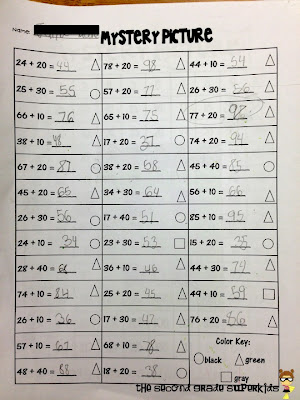 Name:
MYSTERY PICTURE
24 + 20 = 44 78 + 20 = 98 44 + 10 = 54
25 + 30 = 55 57 + 20 = 77 26 + 30 = 56
66 + 10 = 76 65 + 10 = 75 77 + 20 = 92
38 + 10 = 48 17 + 20 = 37 74 + 20 = 94
67 + 20 = 87 38 + 20 = 58 45 + 40 = 85
45 + 20 = 65 34 + 30 = 64 56 + 10 = 66
26 + 30 = 56 17 + 40 = 51 85 + 10 = 95
24 + 10 = 34 23 + 30 = 53 15 + 20 = 35
28 + 40 = 36 + 10 = 46 44 + 30 = 74
74 + 10 = 84 25 + 20 = 45 49 + 10 = 59
26 + 10 = 36 17 + 30 = 47 76 + 20 = 86
57 + 10 = 67 68 + 10 = 78 Color Key:
48 + 40 = 88 18 + 20 = 38 black green
gray
the second grade superkids